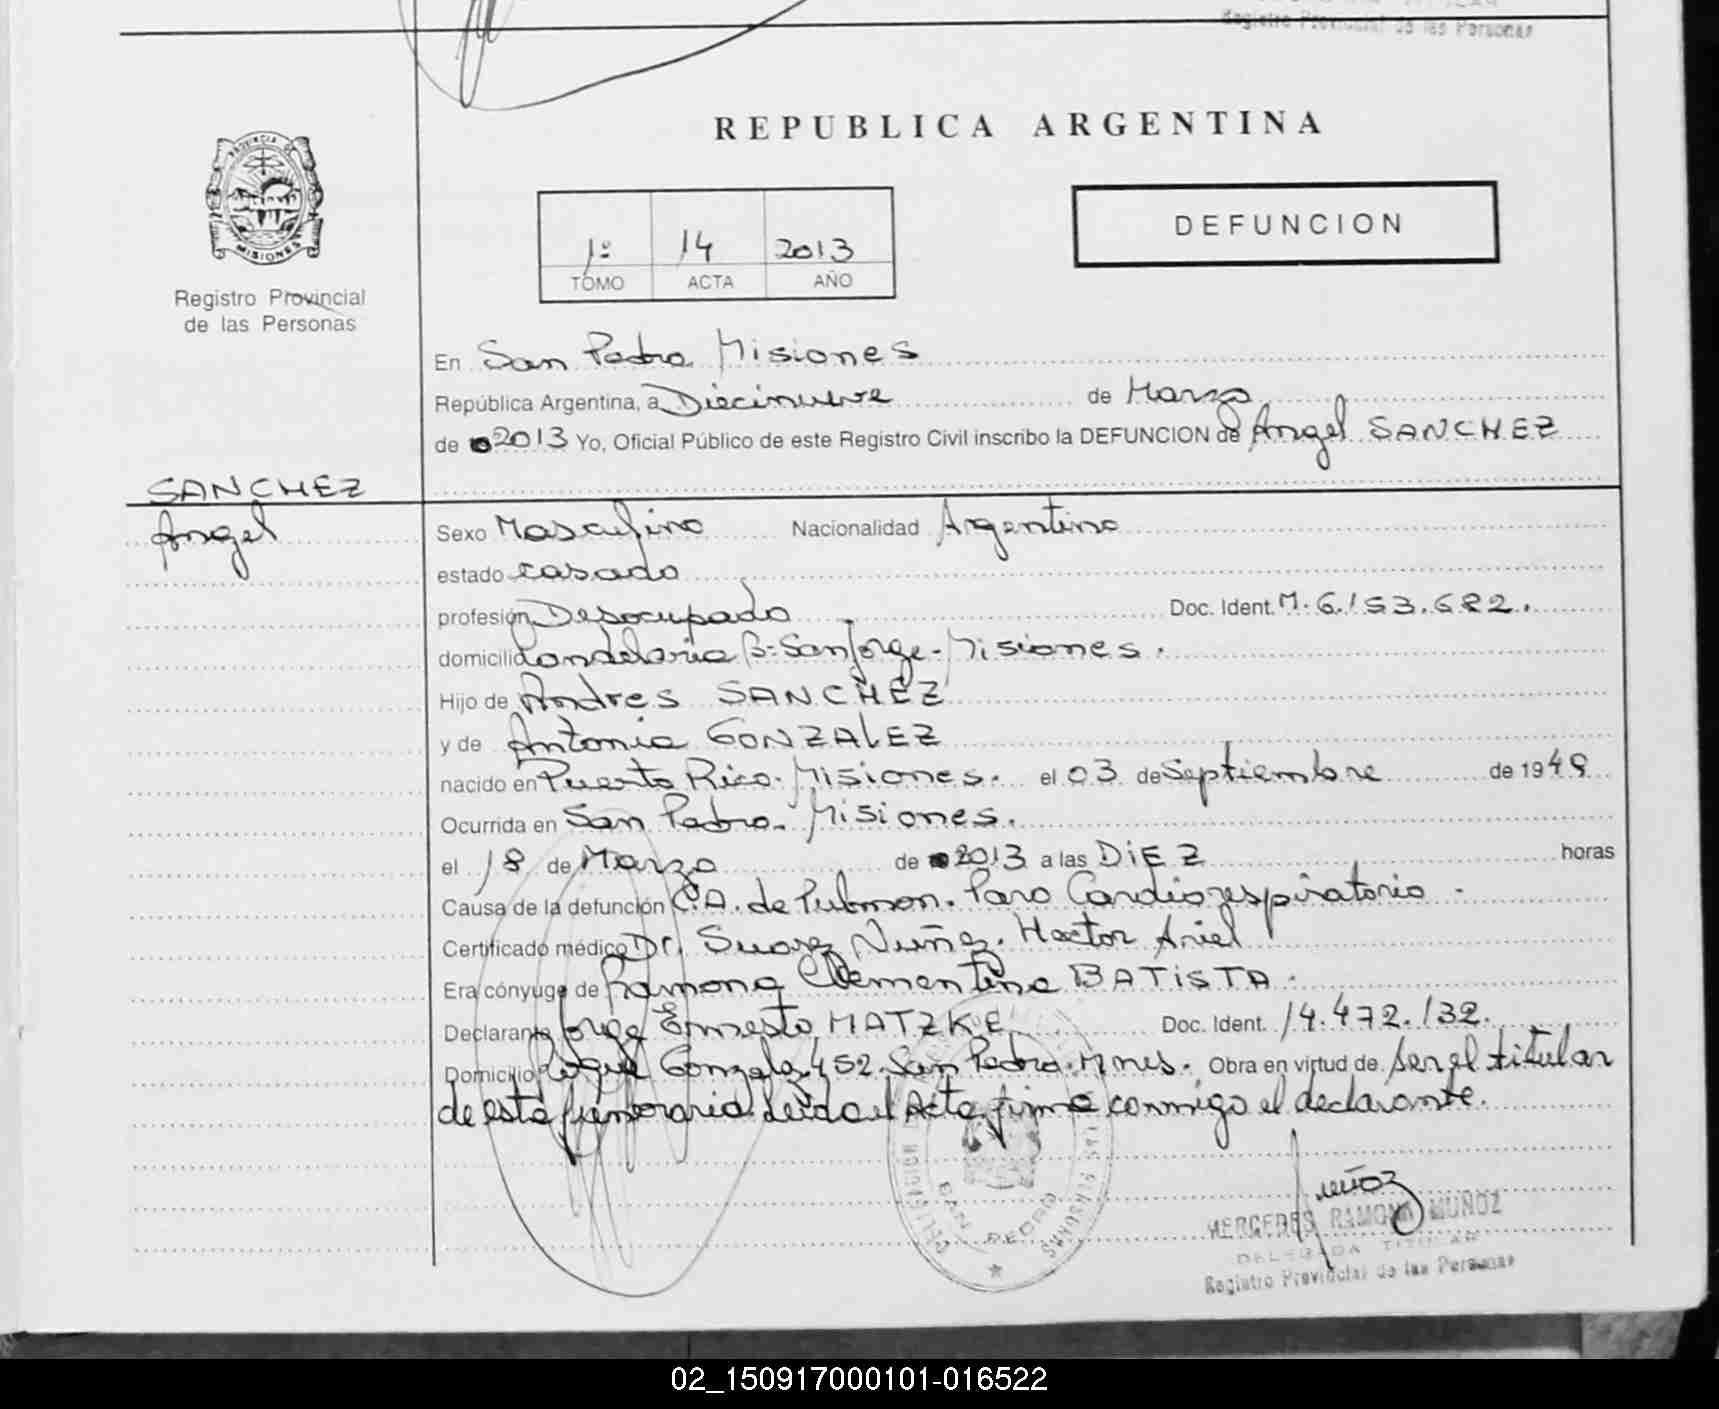 Registro Provincial de las Personas
REPUBLICA ARGENTINA
PROVINCIA DE
MISIONES
Registro Provincial
de las Personas
1º 14 2013
TOMO ACTA AÑO
DEFUNCION
En San Pedro Misiones
República Argentina, a Diecinueve de Marzo
de 2013 Yo, Oficial Público de este Registro Civil inscribo la DEFUNCION de Angel SANCHEZ
SANCHEZ
Angel
Sexo Masculino Nacionalidad Argentino
estado casado
profesión Desocupado Doc. Ident. M. 6.153.682.
domicilio Candelaria Bº San Jorge - Misiones.
Hijo de Andres SANCHEZ
y de Antonia GONZALEZ
nacido en Puerto Rico. Misiones. el 03 de Septiembre de 1948
Ocurrida en San Pedro. Misiones.
el 18 de Marzo de 2013 a las DiEZ horas
Causa de la defunción C.A. de Pulmon. Paro Cardiorespiratorio -
Certificado médico Dr. Suarez Nuñez. Hector Ariel
Era cónyuge de Ramona Clementina BATiSTA.
Declarante Jorge Ernesto MATZKE Doc. Ident. 14.472.132.
Domicilio Roque Gonzalez 452. San Pedro. Mnes. Obra en virtud de ser el titular
de esta funeraria. Leida el Acta, firma conmigo el declarante.
DELEGACION
SAN PEDRO
PERSONAS
Muñoz
MERCEDES RAMONA MUÑOZ
DELEGADA TITULAR
Registro Provincial de las Personas
02_150917000101-016522